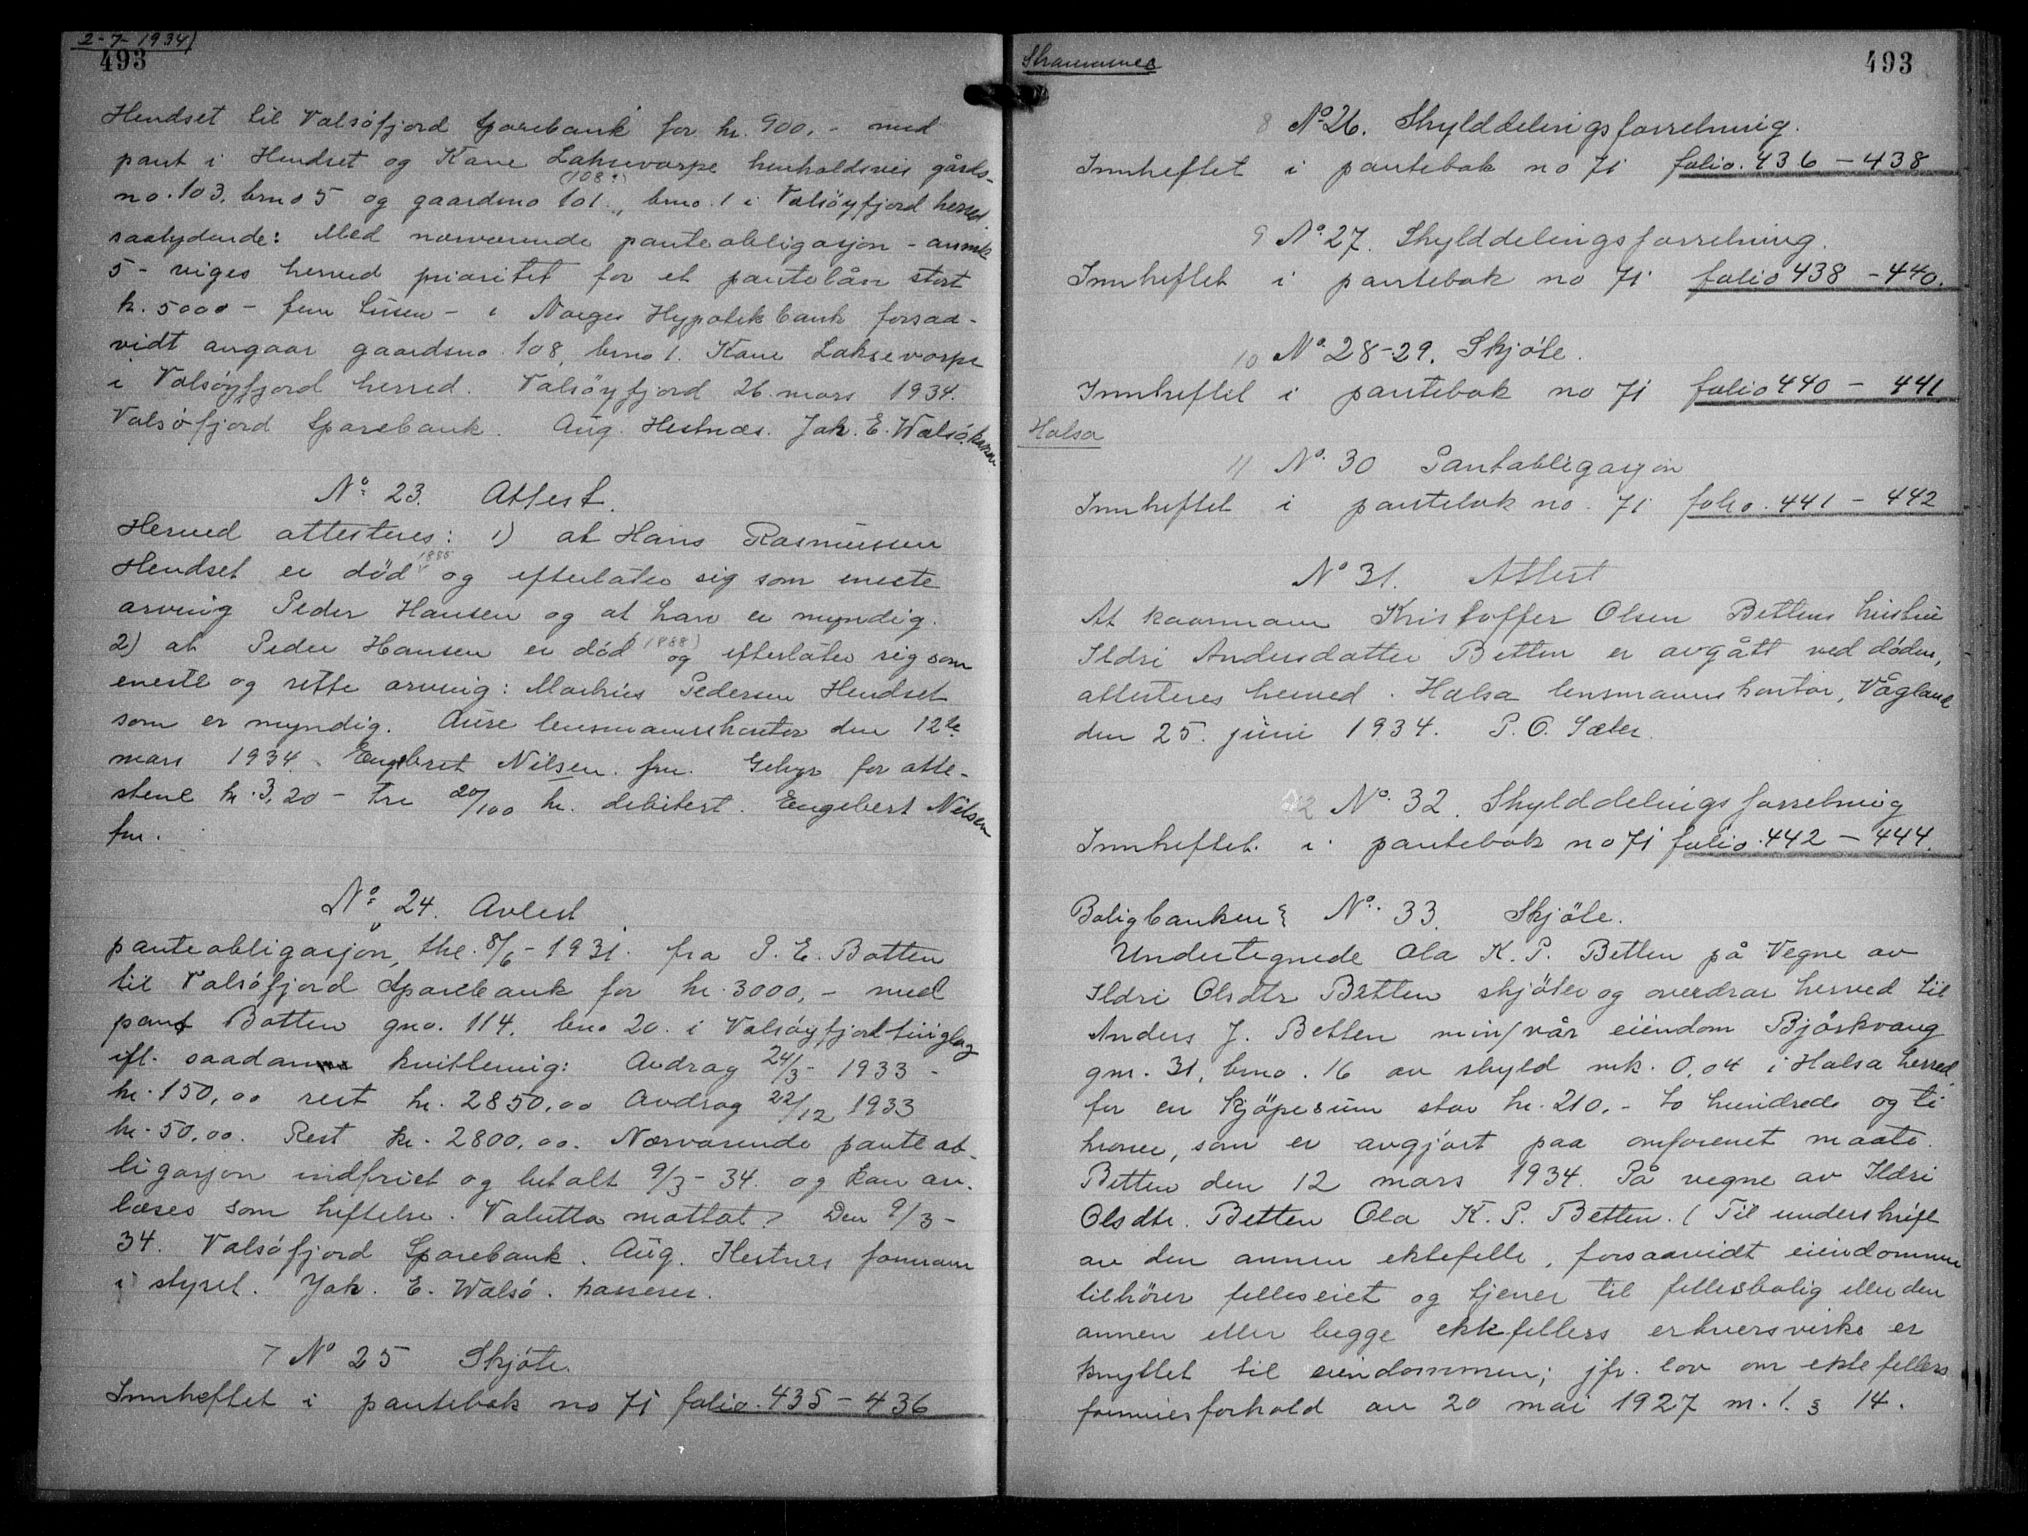 2-7-1934)
493
Hendset til Valsöfjord Sparebank for kr. 900,- med
pant i Hendset og Kane Laksevarpe henholdsvis gårds-
no. 103, brno 5 og gaardsno 101 (108?), brno. 1 i Valsöyfjord herred
saalydende: Med nærværende panteobligasjon - anmk
5 - viges herved prioritet for et pantelån stort
kr. 5000 - fem tusen - i Norges Hypotekbank forsaa-
vidt angaar gaardsno. 108, brno 1. Kane Laksevarpe
i Valsöyfjord herred. Valsöyfjord 26. mars 1934.
Valsöfjord Sparebank. Aug. Hestnæs. Jak. E. Walsö. kasserer
No. 23. Attest.
Herved attesteres: 1) at Hans Rasmussen
Hendset er död 1885 og efterlater sig som eneste
arving Peder Hansen og at han er myndig.
2) at Peder Hansen er död (1888) og efterlater sig som
eneste og rette arving: Markus Pedersen Hendset
som er myndig. Aure lensmannskontor den 12te
mars 1934. Engebret Nilsen. fm. Gebyr for atte-
stene kr. 3,20 - tre 20/100 kr. debitert. Engebert Nilsen
fm.
No. 24. Avlest
panteobligasjon, thl. 8/6 - 1931. fra P. E. Botten
til Valsöfjord Sparebank for kr. 3000,- med
pant Botten gno. 114, bno 20. i Valsöyfjord tinglag
ifl. saadan kvittering: Avdrag 24/3 - 1933 -
kr. 150,00 rest kr. 2850,00 Avdrag 22/12 1933
kr. 50,00. Rest kr. 2800,00. Nærværende panteob-
ligasjon indfriet og betalt 9/3 - 34. og kan av-
læses som heftelse. Valutta mottat. Den 9/3 -
34. Valsöfjord Sparebank. Aug. Hestnes formann
i styret. Jak. E. Walsö. kasserer.
7 No 25 Skjöte.
Innheftet i pantebok no 71 folio. 435 - 436
Straumsnes
493
8 No 26. Skylddelingsforretning.
Innheftet i pantebok no 71 folio. 436 - 438
9 No. 27. Skylddelingsforretning.
Innheftet i pantebok no 71 folio 438 - 440.
10 No. 28-29. Skjöte.
Innheftet i pantebok no 71 folio 440 - 441
Halsa
11 No. 30 Pantobligasjon
Innheftet i pantebok no. 71 folio. 441 - 442
No 31. Attest
At kaarmann Kristoffer Olsen Bettens hustru
Ildri Andersdatter Betten er avgått ved döden,
attesteres herved. Halsa lensmannskontor, Vågland
den 25. juni 1934. P. O. Sæter.
12 No. 32. Skylddelingsforretning
Innheftet i pantebok no 71 folio. 442 - 444.
Boligbanken No. 33. Skjöte.
Undertegnede Ola K. P. Betten på Vegne av
Ildri Olsdtr Betten skjöter og overdrar herved til
Anders J. Betten min/vår eiendom Björkvang
gnr. 31, brno. 16 av skyld mk. 0,04 i Halsa herred,
for en kjöpesum stor kr. 210,- to hundrede og ti
kroner, som er avgjort paa omforenet maate.
Betten den 12 mars 1934. På vegne av Ildri
Olsdtr. Betten Ola K. P. Betten. (Til underskrift
av den annen ektefelle, forsaavidt eiendommen
tilhörer felleseiet og tjener til fellesbolig eller den
annen eller begge ektefellers erhversvirke er
knyttet til eiendommen; jfr. lov om ektefellers
formuesforhold av 20 mai 1927 m. l. § 14.